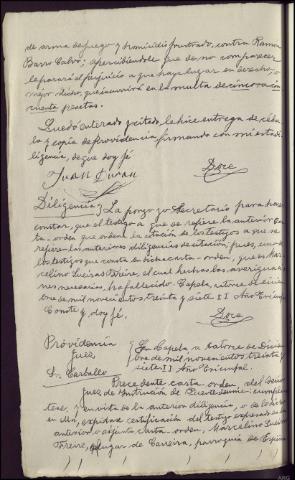 de arma de fuego y homicidio frustrado, contra Ramon
Barro Calvo; apercibiendole que de no comparecer
le parará el perjuicio a que haya lugar en derecho, o
mejor dicho, que incurrirá en la multa de cincuenta
pesetas.
Quedó enterado y citado, le hice entrega de cédula
y copia de providencia firmando con mi esta diligencia,
de que doy fé
Juan
Diligencia} La pongo yo Secretario para hacer
constar, que el testigo a que se refiere la anterior carta
orden que ordena la citacion de los testigos a que se
refieren las anteriores diligencias de citación, pues, uno de
los testigos que consta en dicha carta-orden, que es Marcelino
Lueiras Freire, el cual hechas las averiguaciones
necesarias, ha fallecido. Capela, catorce de diciembre
de mil novecientos treinta y siete II Año Triunfal.
Conste y doy fé.
Providencia
Juez
Sr. Carballo
En Capela a catorce de Diciembre
de mil novecientos treinta y
siete II Año Triunfal.
Precedente carta orden del Señor
Juez de Instrucción de Puentedeume; cumplimentese
y en vista de la anterior diligencia,
expidase certificación del testigo expresado en la
anterior adjunta carta-orden, Marcelino Lueiras
Freire, lugar de Carreira, parroquia de Espiñ